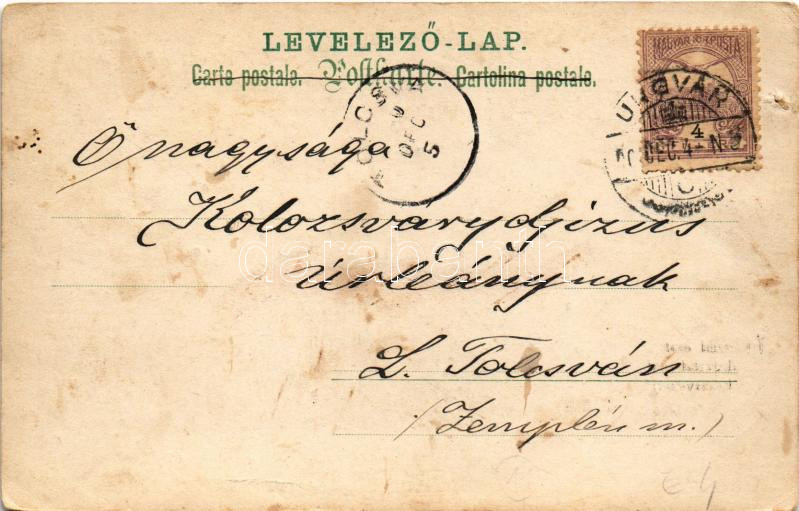 LEVELEZŐ-LAP.
Carte postale. Postkarte. Cartolina postale.
MAGYAR KIR. POSTA
UNGVÁR
DEC. 4 N 2
4
TOLCSVA
DEC
5
Ő nagysága
Kolozsváry Gizus
úrleánynak
L. Tolcsván
(Zemplén m.)
darabanth